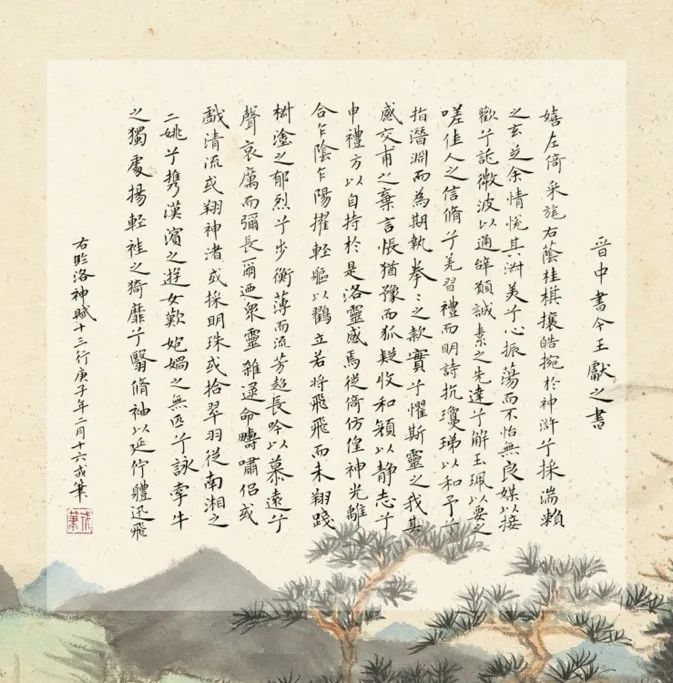 晉中書令王獻之書
嬉左倚采旄右蔭桂棋攘皓捥於神滸兮採湍瀨
之玄芝余情悅其淑美兮心振蕩而不怡無良媒以接
歡兮託微波以通辭願誠素之先達兮解玉珮以要之
嗟佳人之信脩兮羌習禮而明詩抗瓊珶以和予兮
指潛淵而為期執拳〻之款實兮懼斯靈之我其
感交甫之棄言悵猶豫而狐疑收和顏以靜志兮
申禮方以自持於是洛靈感焉徙倚仿偟神光離
合乍陰乍陽擢輕軀以鶴立若將飛飛而未翔踐
樹塗之郁烈兮步衡薄而流芳超長吟以慕遠兮
聲哀厲而彌長爾迺衆靈雜遝命疇嘯侶或
戲清流或翔神渚或採明珠或拾翠羽從南湘之
二姚兮攜漢濱之遊女歎匏媧之無匹兮詠牽牛
之獨處揚輕袿之猗靡兮翳脩袖以延佇體迅飛
右臨洛神賦十三行庚子年二月十六戎筆